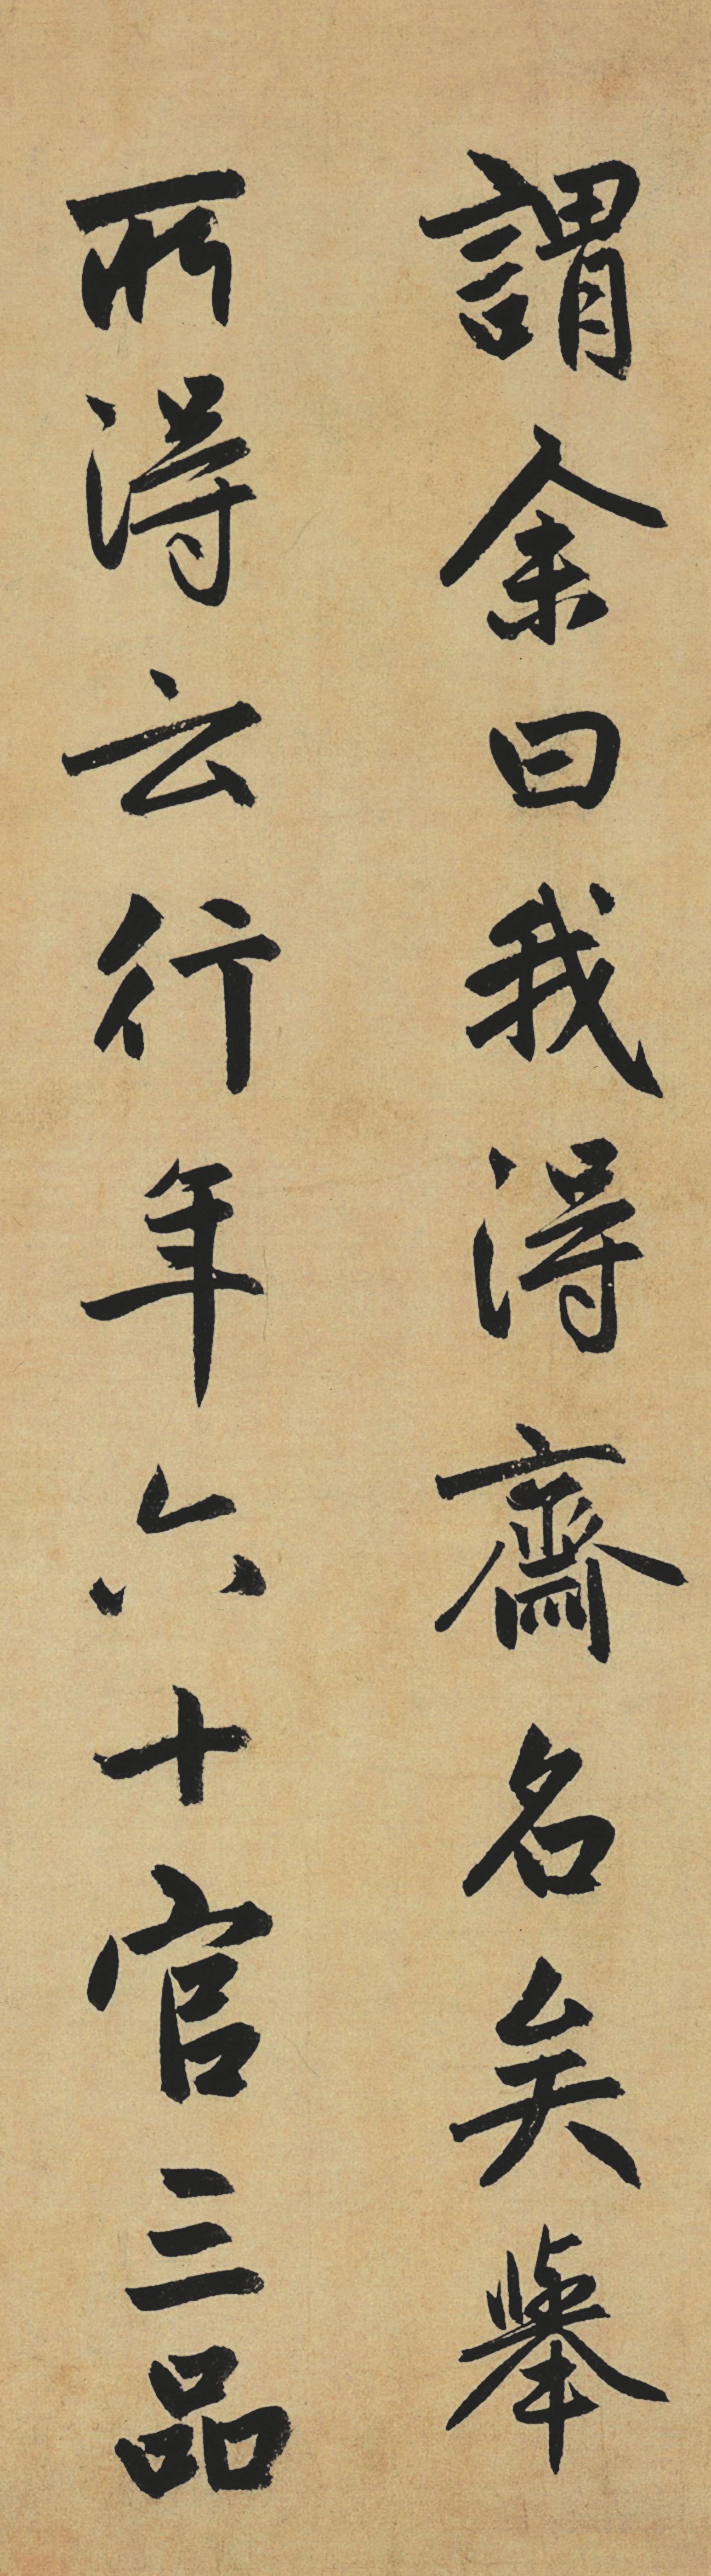 謂余曰我得齋名矣舉
所得云行年六十官三品